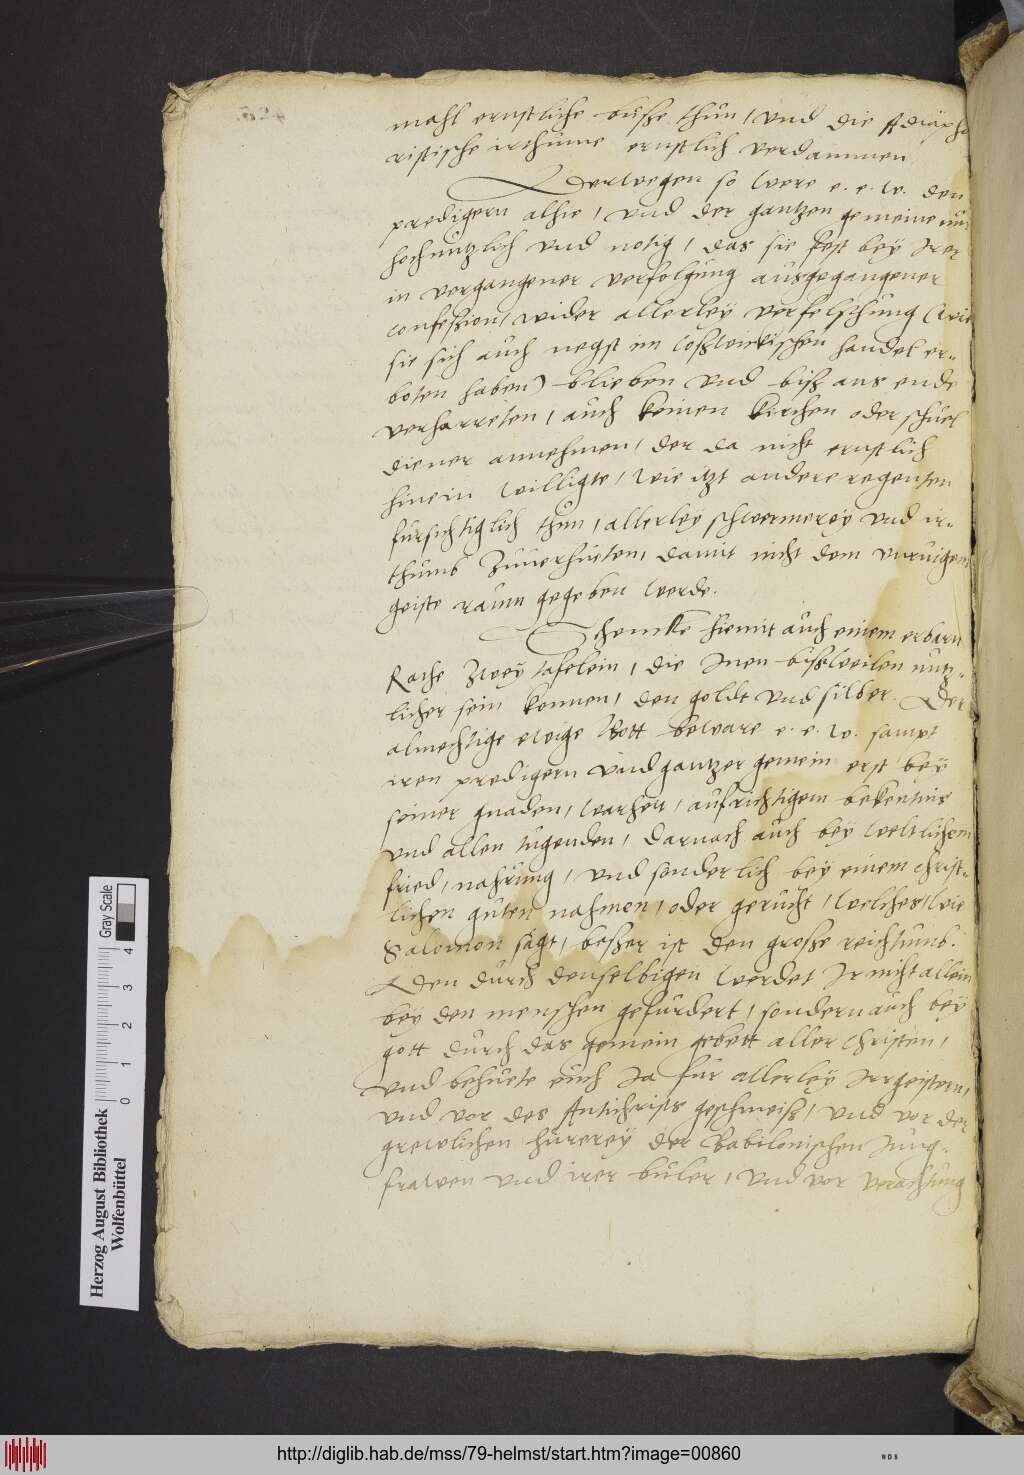 mahl ernstliche buße thun, und die Adiapho
ristische irthume ernstlich verdammen
Derwegen so were e. e. w. den
predigern alhie, und der gantzen gemeine nur
hochnutzlich und notig, das sie fest bey irer
in vergangener verfolgung ausgegangener
confession, wider allerley verfelschung (wie
sie sich auch negst im handel er-
boten haben) blieben und biß ans ende
verharreten, auch keinen kirchen oder schuel
diener annehmen, der da nicht ernstlich
hinein willigte, wie itzt andere regenten
fursichtiglich thun, allerley schwermerey und ir-
thumb zuuerhueten, damit nicht dem unruigem
geiste raum gegeben werde.
Schencke hiemit auch einem erbarn
Rathe zwey tafelein, die inen bißweilen nutz-
licher sein konnen, den goldt und silber. Der
almechtige ewige Gott beware e. e. w. sampt
iren predigern und gantzer gemein erst bey
seiner gnaden, warheit, aufrichtigem bekentnis
und allen tugenden, darnach auch bey weltlichem
fried, nahrung, und sonderlich bey einem christ-
lichen guten nahmen, oder gerucht, welches, wie
Salomon sagt, beßer ist den große reichtumb.
Den durch denselbigen werdet ir nicht allein
bey den menschen gefurdert, sondern auch bey
gott durch das gemein gebett aller Christen,
und behuete euch ja fur allerley irrgeistern,
und vor des Antichrists geschmeiß, und vor der
grewlichen hurerey der Babilonischen jung-
frawen und irer buler, und vor verachtung
Herzog August Bibliothek
Wolfenbüttel
Gray Scale
0 1 2 3 4
http://diglib.hab.de/mss/79-helmst/start.htm?image=00860